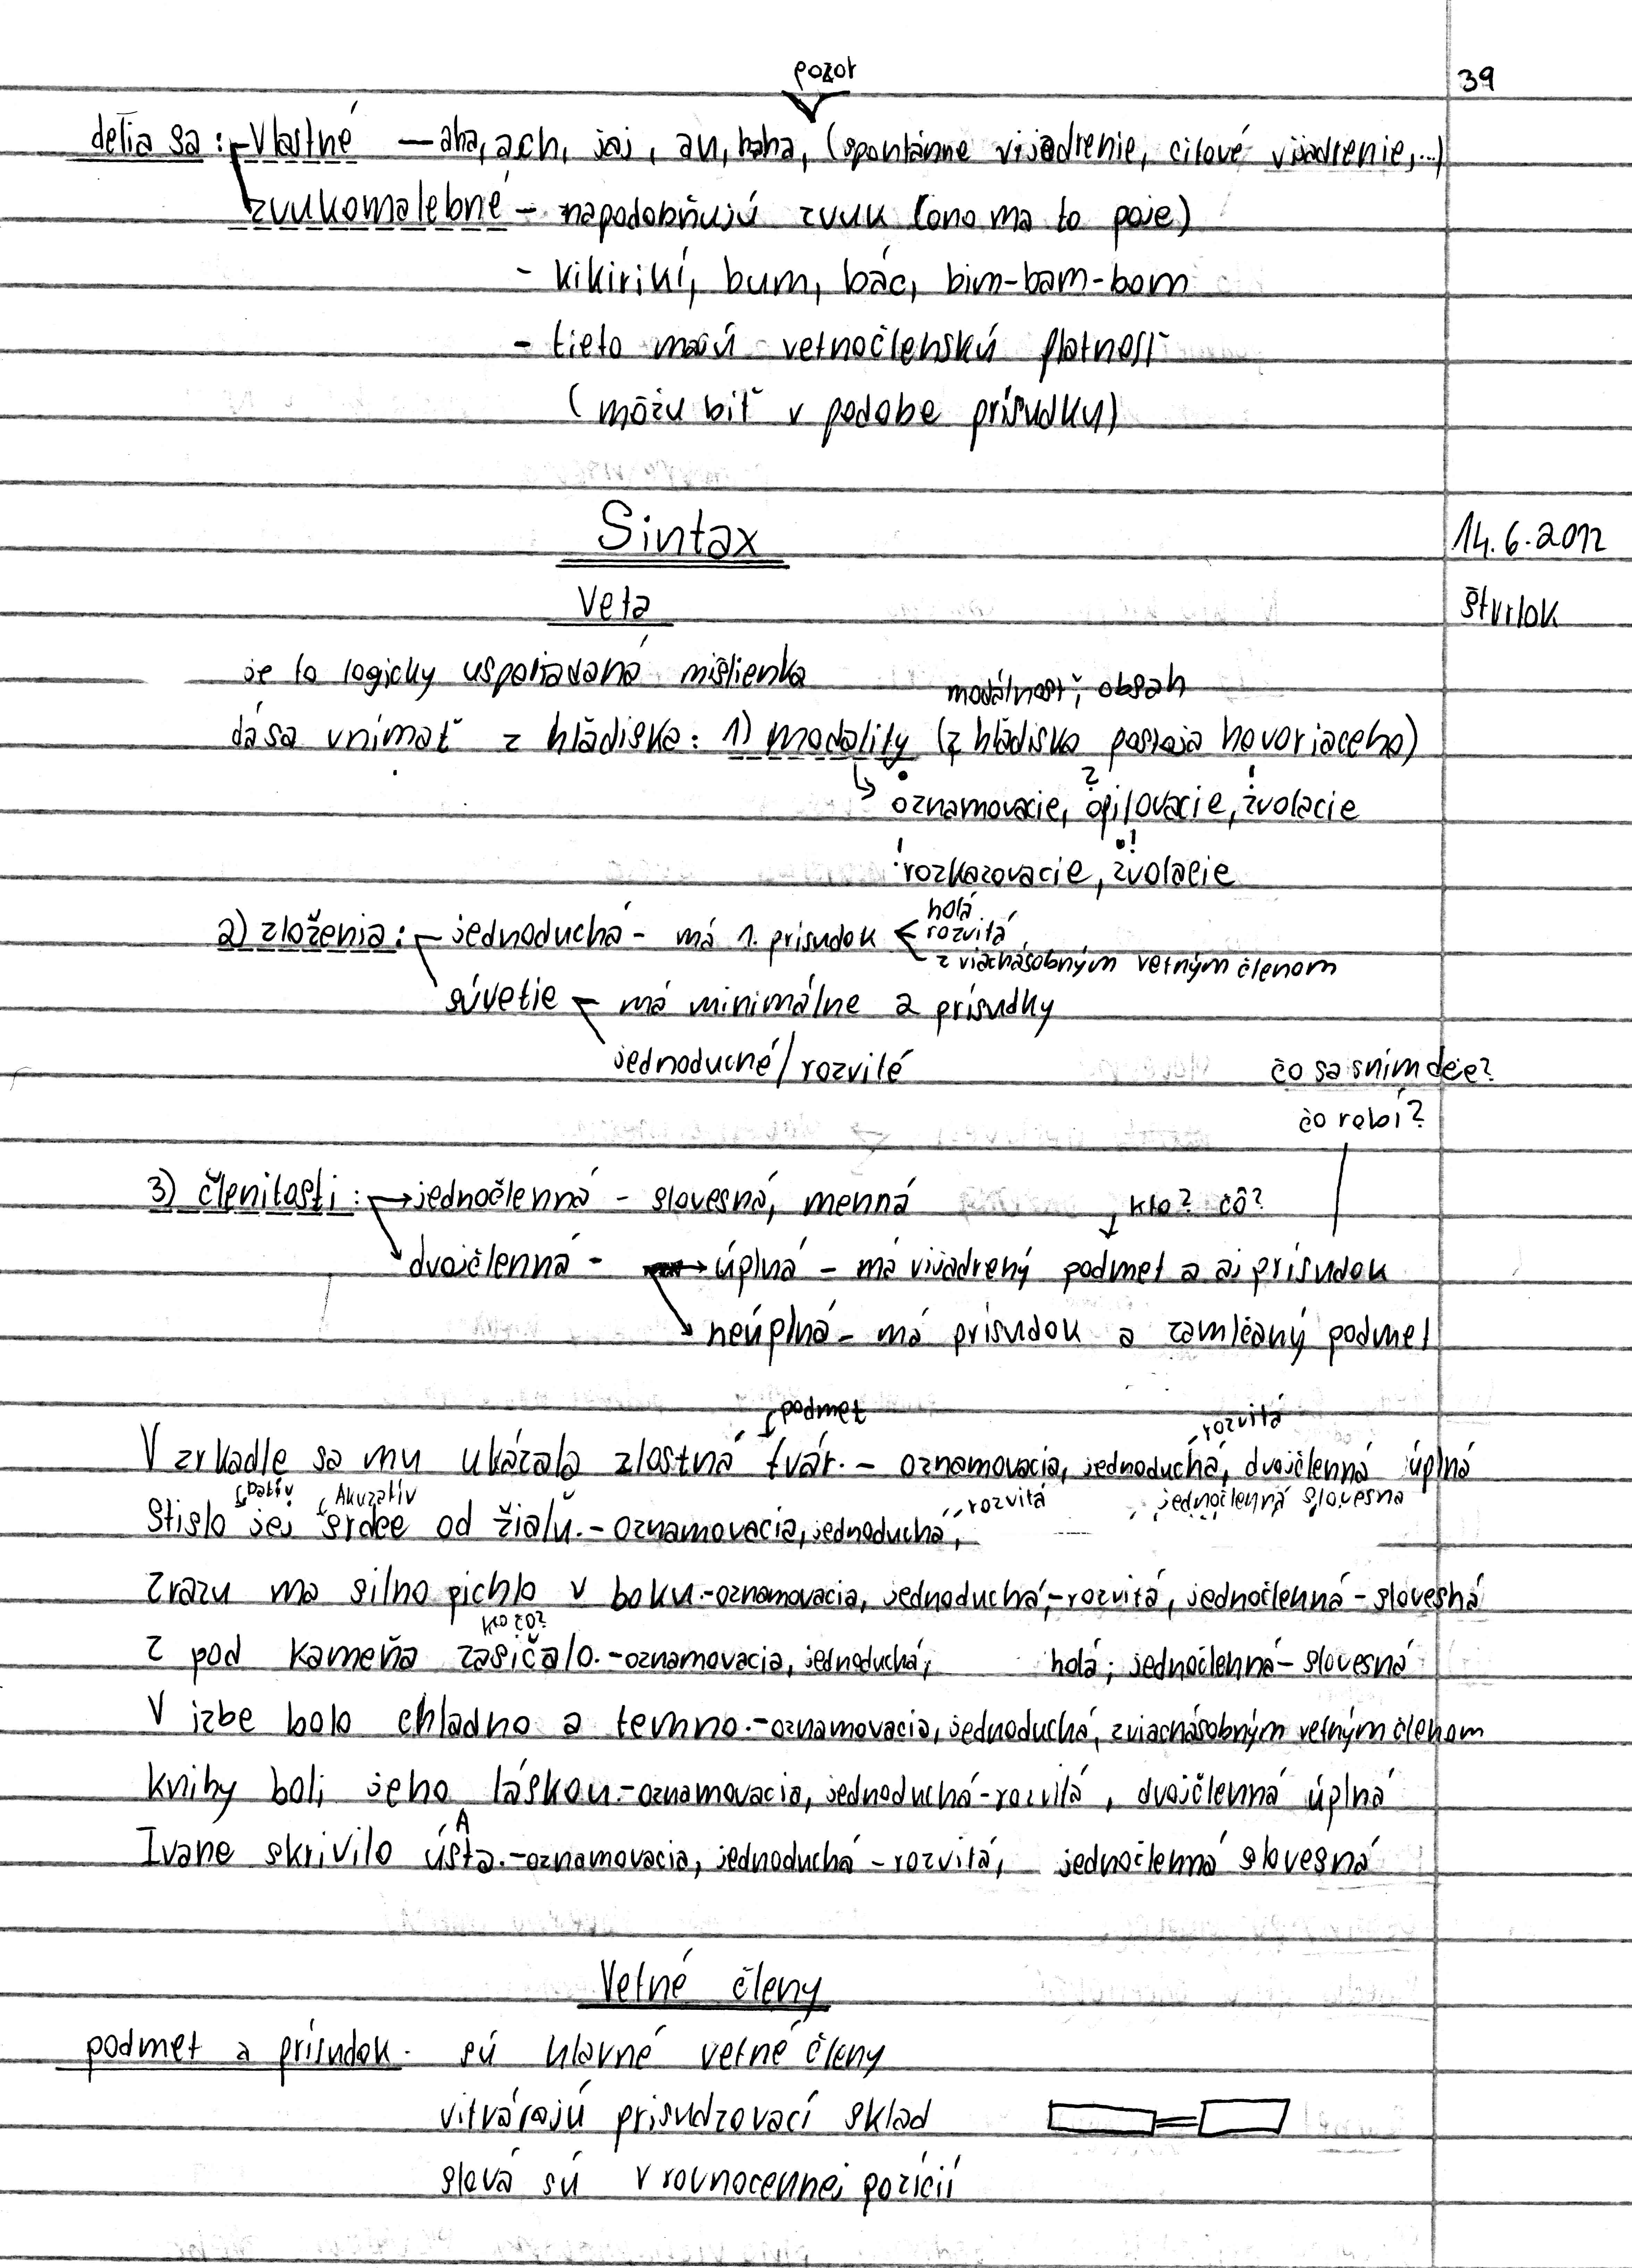 pozor
39
delia sa: vlastné — aha, ach, jaj, au, haha, (spontánne vijadrenie, citové vijadrenie,...)
zvukomalebné - napodobňujú zvuk (ono ma to poje)
- kikirikí, bum, bác, bim-bam-bom
- tieto majú vetnočlenskú platnosť
(môžu biť v podobe prísudku)
Sintax
14.6.2012
Veta
štvrtok
je to logicky usporiadaná mišlienka
modálnosť; obsah
dá sa vnímať z hľadiska: 1) modality (z hľadiska postoja hovoriaceho)
. ? !
oznamovacie, opitovacie, zvolacie
! .!
rozkazovacie, zvolacie
holá
2) zloženia: jednoduchá - má 1. prisudok < rozvitá
z viacnásobným vetným členom
súvetie - má minimálne 2 prísudky
jednoduché/rozvité
čo sa sním deje?
čo robí?
3) členitosti: → jednočlenná - slovesná, menná
kto? čo?
dvojčlenná - → úplná - má vijadrený podmet a aj prísudok
neúplná - má prisudok a zamlčaný podmet
podmet
rozvitá
V zrkadle sa mu ukázala zlostná tvár. - oznamovacia, jednoduchá, dvojčlenná úplná
Datív Akuzatív rozvitá jednočlenná slovesná
Stislo jej srdce od žiaľu. - oznamovacia, jednoduchá,
Zrazu ma silno pichlo v boku. - oznamovacia, jednoduchá, - rozvitá, jednočlenná - slovesná
kto čo?
Z pod kameňa zasičalo. - oznamovacia, jednoduchá; holá; jednočlenná - slovesná
V izbe bolo chladno a temno. - oznamovacia, jednoduchá, z viacnásobným vetným členom
Knihy boli jeho láskou. - oznamovacia, jednoduchá - rozvitá, dvojčlenná úplná
A
Ivane skrivilo ústa. - oznamovacia, jednoduchá - rozvitá, jednočlenná slovesná
Vetné členy
podmet a prísudok sú hlavné vetné členy
vitvárajú prisudzovací sklad
slová sú v rovnocennej pozícií